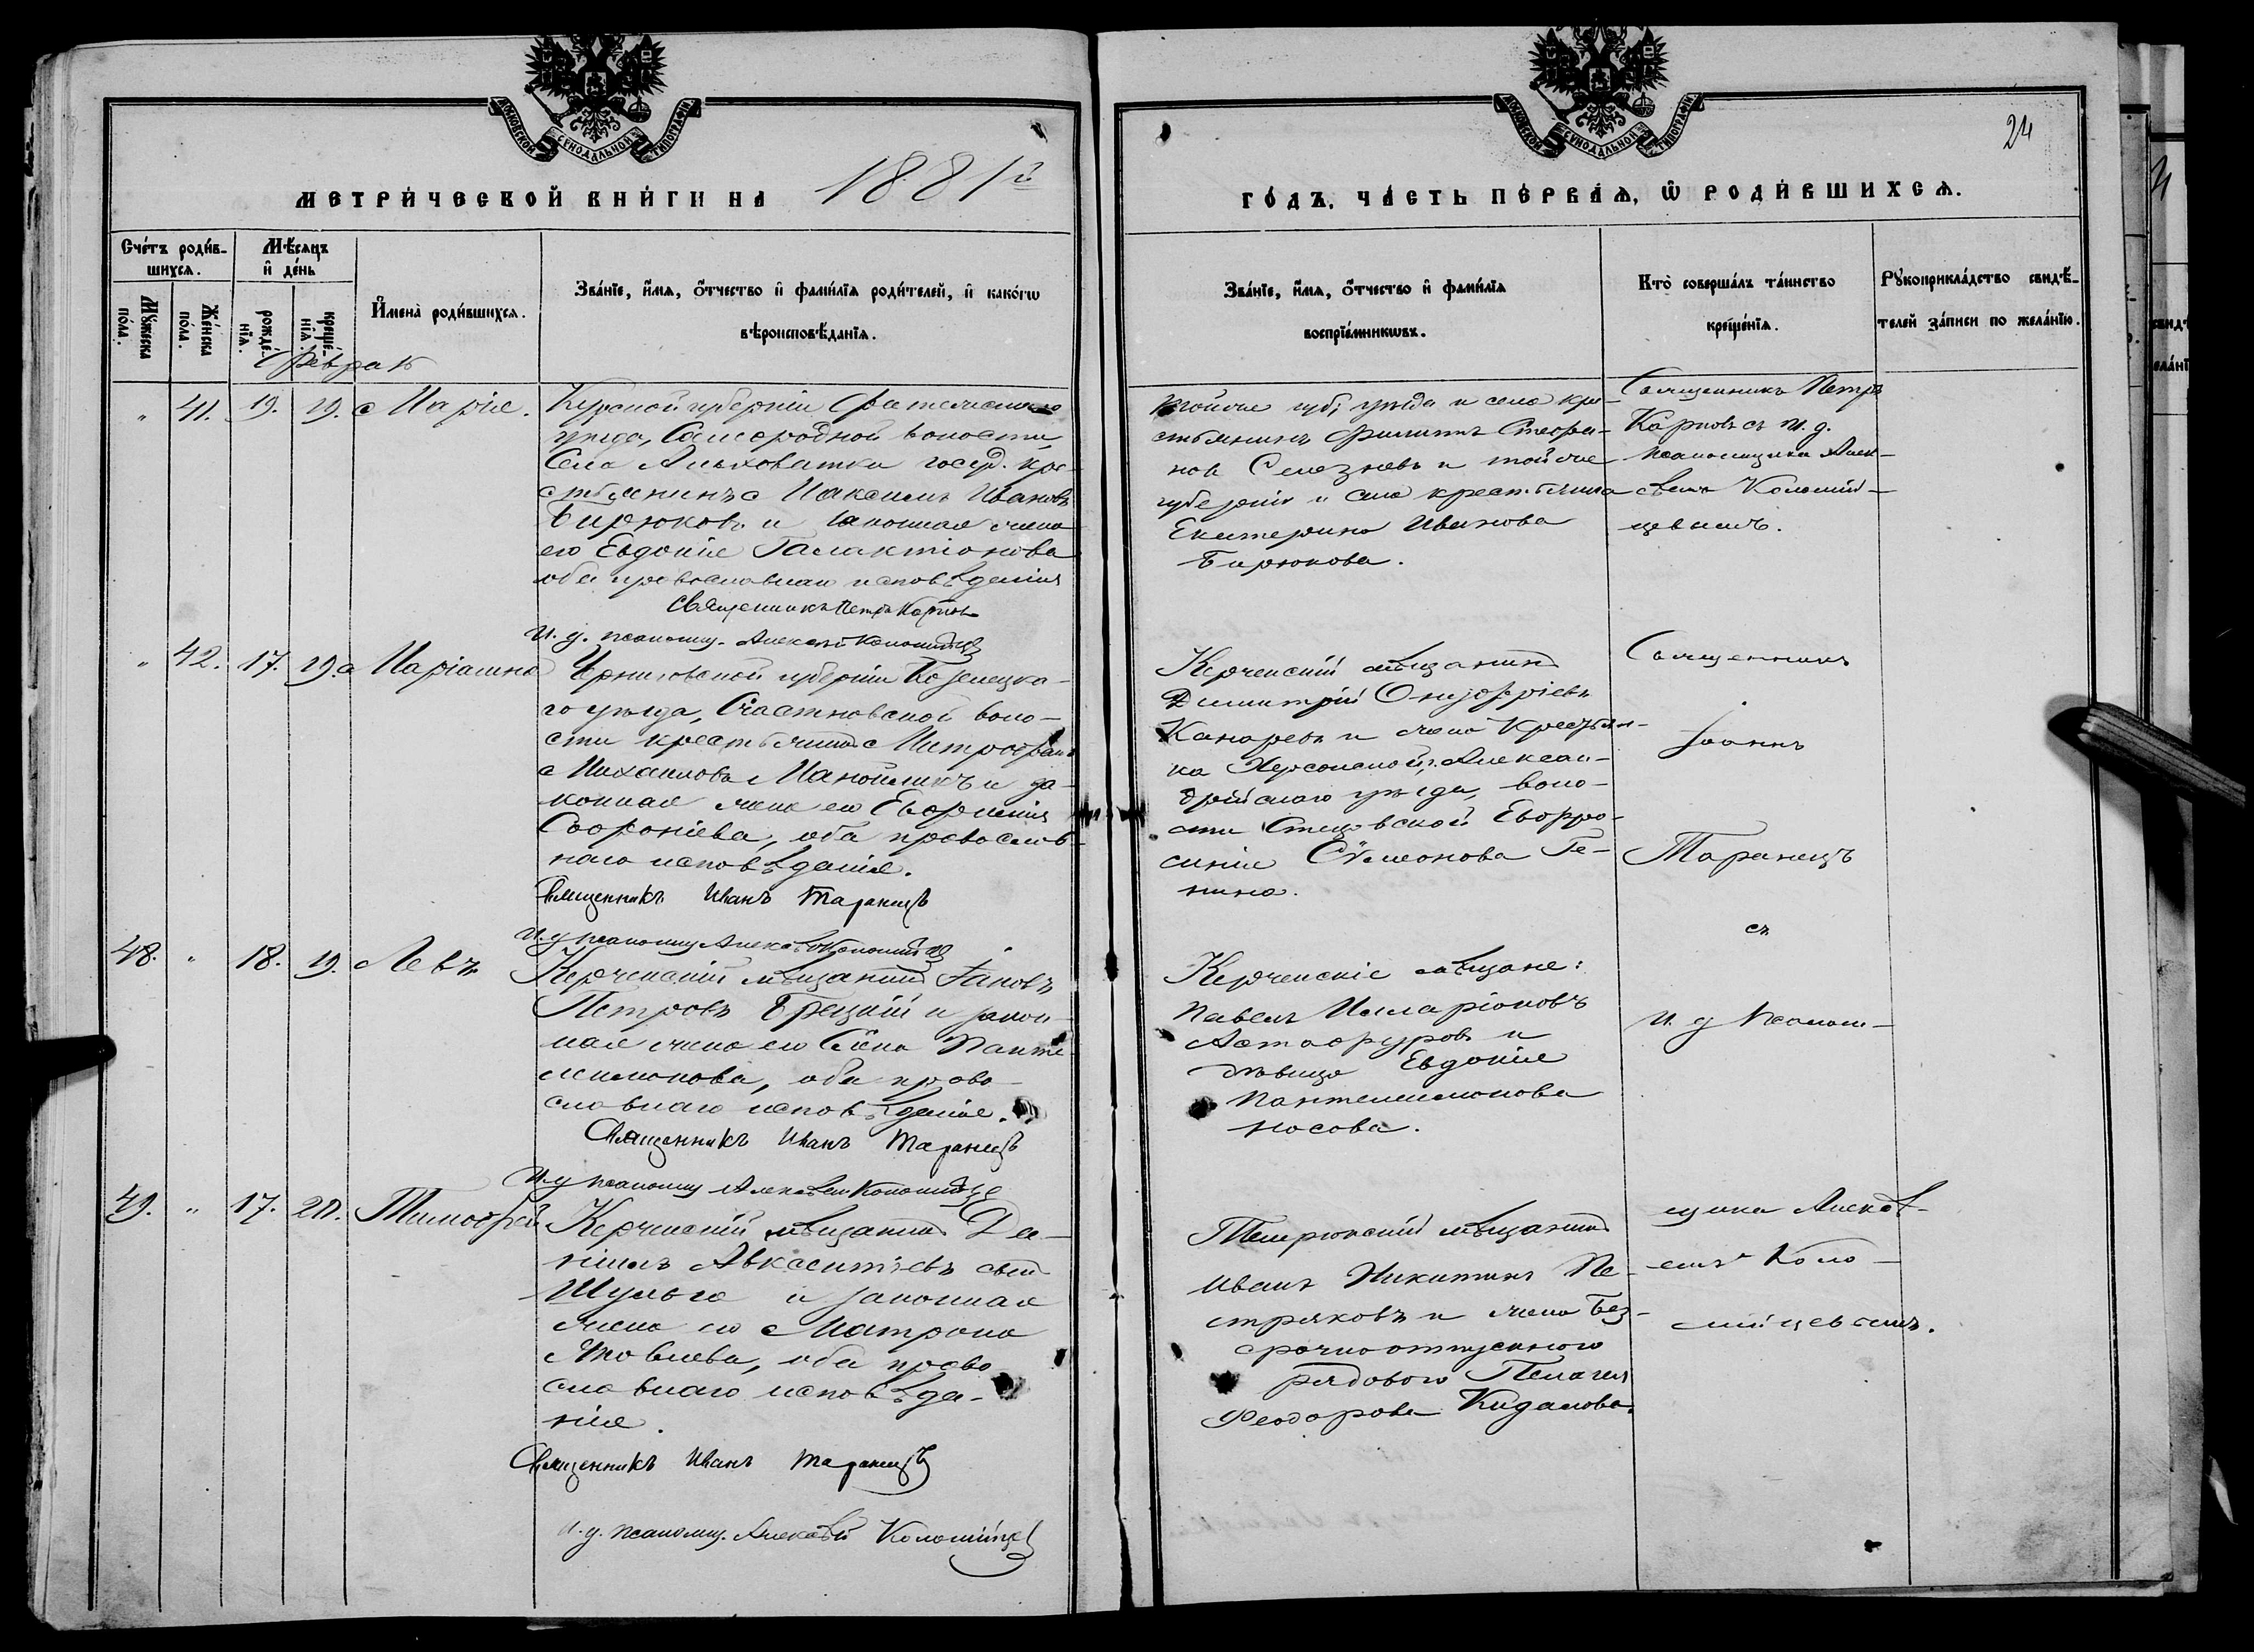 МОСКОВСКОЙ СѴНОДАЛЬНОЙ ТИПОГРАФІИ
МЕТРИ́ЧЕСКОЙ КНИ́ГИ НА 1881й
Сче́тъ роди́в-
шихсѧ.
Мѣ́сѧцъ
и҆ де́нь
Мꙋ́жеска
по́ла.
Же́нска
по́ла.
рожде́-
нїѧ.
креще́-
нїѧ.
И҆мена̀ роди́вшихсѧ.
Зва́нїе, и҆́мѧ, ѻ҆́тчество и҆ фами́лїѧ роди́телей, и҆ како́гѡ
вѣроисповѣ́данїѧ.
Феврал
" 41. 19. 19. Марія.
Курской губерніи Фатежскаго
уѣзда, Самородной волости,
Села Альховатки госуд. кре-
стьянинъ Максимъ Ивановъ
Бирюковъ и законная жена
его Евдокія Галактіонова
оба православнаго исповѣданія
Священникъ Петръ Карповъ
И. д. псаломщ. Алексѣй Коломійцевъ
" 42. 17. 19. Маріамна
Черниговской губерніи Козелецка-
го уѣзда, Счастновской воло-
сти крестьянинъ Митрофанъ
Михаиловъ Манойликъ и за-
конная жена его Евфимія
Софроніева, оба православ-
наго исповѣданія.
Священникъ Иванъ Таранецъ
И. д псаломщ Алексѣй Коломійцевъ
48. " 18. 19. Левъ
Керченскій мѣщанинъ Іаковъ
Петровъ Грецкій и закон-
ная жена его Анна Панте-
леимонова, оба право-
славнаго исповѣданія.
Священникъ Иванъ Таранецъ
И. д псаломщ Алексѣй Коломійцевъ
49. " 17. 20. Тимофей
Керченскій мѣщанинъ Да-
ніилъ Авксентіевъ
Шульга и законная
жена его Матрона
Яковлева, оба право-
славнаго исповѣда-
нія.
Священникъ Иванъ Таранецъ
И. д. псаломщ. Алексѣй Коломійцевъ
24
МОСКОВСКОЙ СѴНОДАЛЬНОЙ ТИПОГРАФІИ
ГО́ДЪ, ЧА́СТЬ ПЕ́РВАѦ, Ѡ҆ РОДИ́ВШИХСѦ.
Зва́нїе, и҆́мѧ, ѻ҆́тчество и҆ фами́лїѧ
воспрїе́мникѡвъ.
Кто̀ соверша́лъ та́инство
креще́нїѧ.
Рꙋкоприкла́дство свидѣ́-
телей за́писи по жела́нїю.
Тойже губ, уѣзда и села кре-
стьянинъ Филиппъ Стефа-
новъ Селезневъ и тойже
губерніи и села крестьянка
Екатерина Иванова
Бирюкова.
Священникъ Петръ
Карповъ съ и. д.
псаломщика Алек-
сѣемъ Коломій-
цевымъ.
Керченскій мѣщанинъ
Димитрій Онуфріевъ
Канаревъ и жена крестьян-
ка Херсонской, Алексан-
дрійскаго уѣзда, воло-
сти Стецовской Евфро-
синія Сѵмеонова Ге-
нина.
Священникъ
Іоаннъ
Таранецъ
съ
Керченскіе мѣщане:
Павелъ Иларіоновъ
Астафуровъ и
дѣвица Евдокія
Пантелеимонова
Носова.
И. д Псалом-
Темрюкскій мѣщанинъ
Иванъ Никитинъ Пе-
стряковъ и жена без-
срочноотпускного
рядового Пелагія
Феодорова Кидалова.
щика Алексѣ-
емъ Коло-
мійцевымъ.